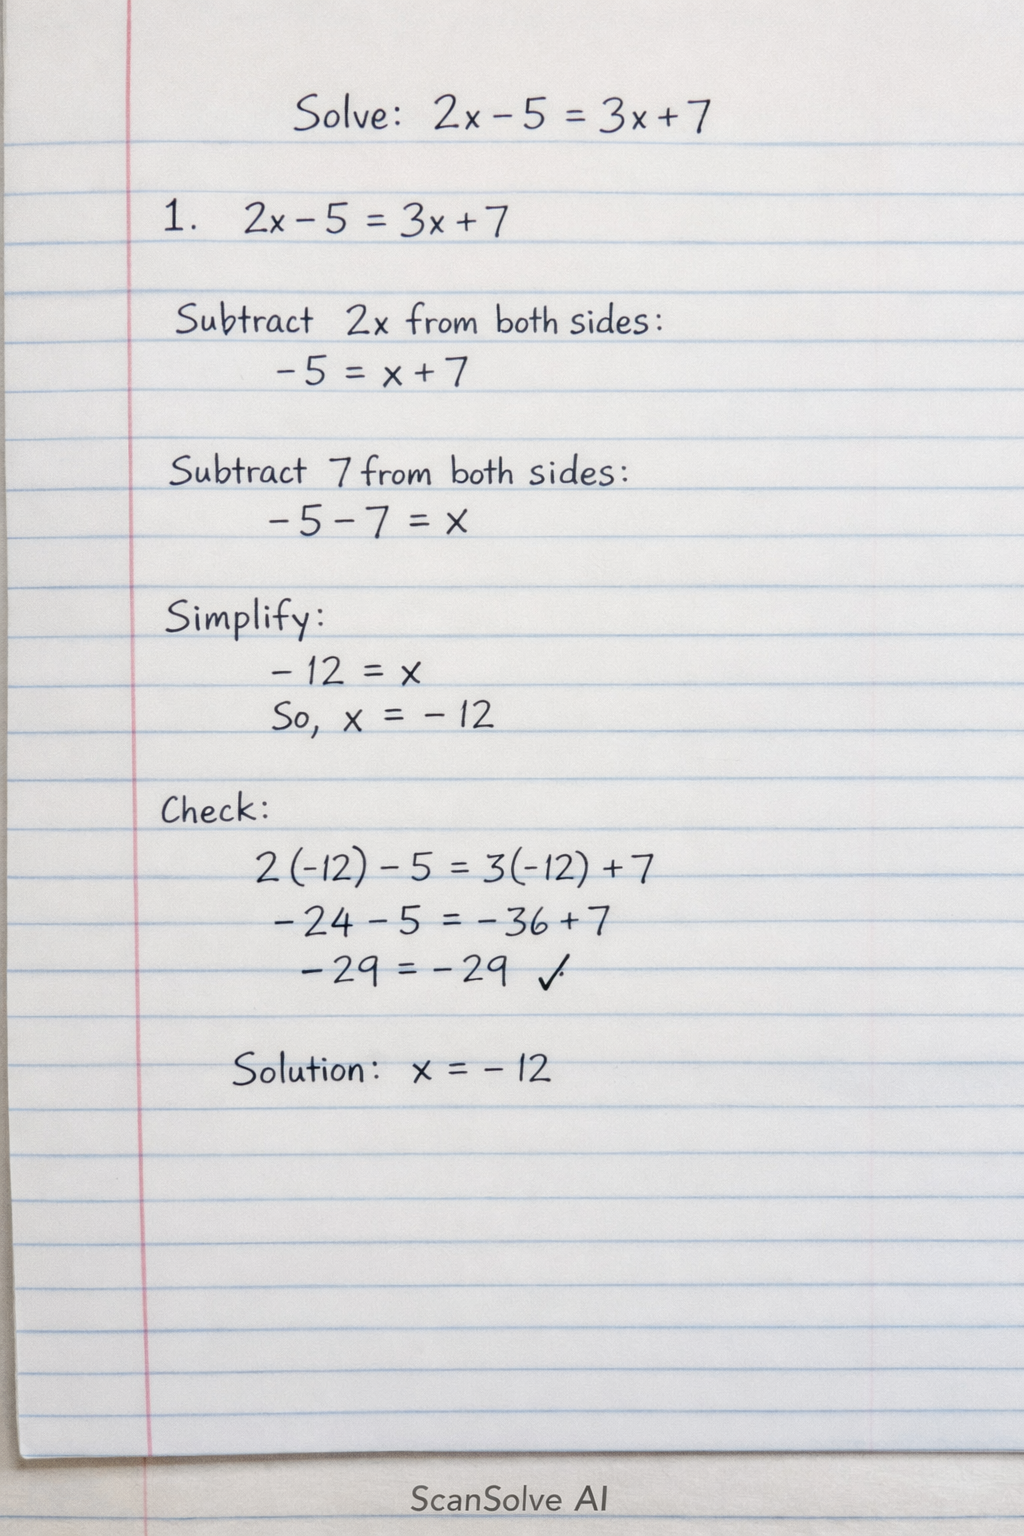 Solve: 2x - 5 = 3x + 7
1. 2x - 5 = 3x + 7
Subtract 2x from both sides:
-5 = x + 7
Subtract 7 from both sides:
-5 - 7 = x
Simplify:
-12 = x
So, x = -12
Check:
2(-12) - 5 = 3(-12) + 7
-24 - 5 = -36 + 7
-29 = -29 ✓
Solution: x = -12
ScanSolve AI